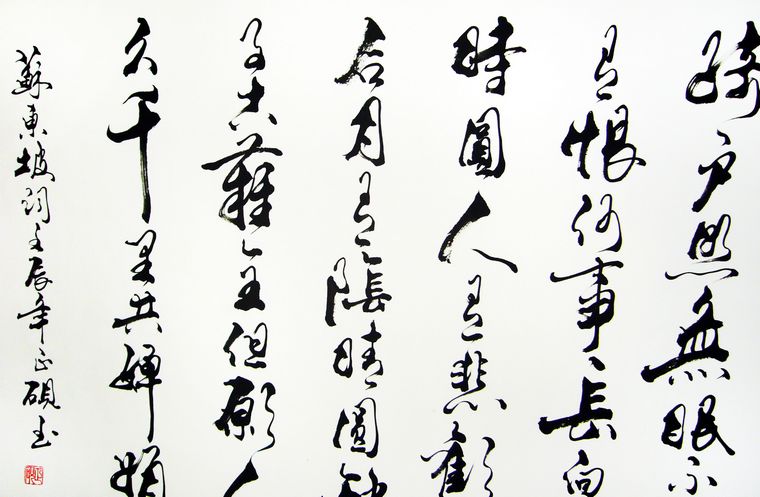 綺戶照無眠不
有恨何事長向
時圓人有悲歡
合月有陰晴圓缺
事古難全但願人
久千里共嬋娟
蘇東坡詞壬辰年正碩書